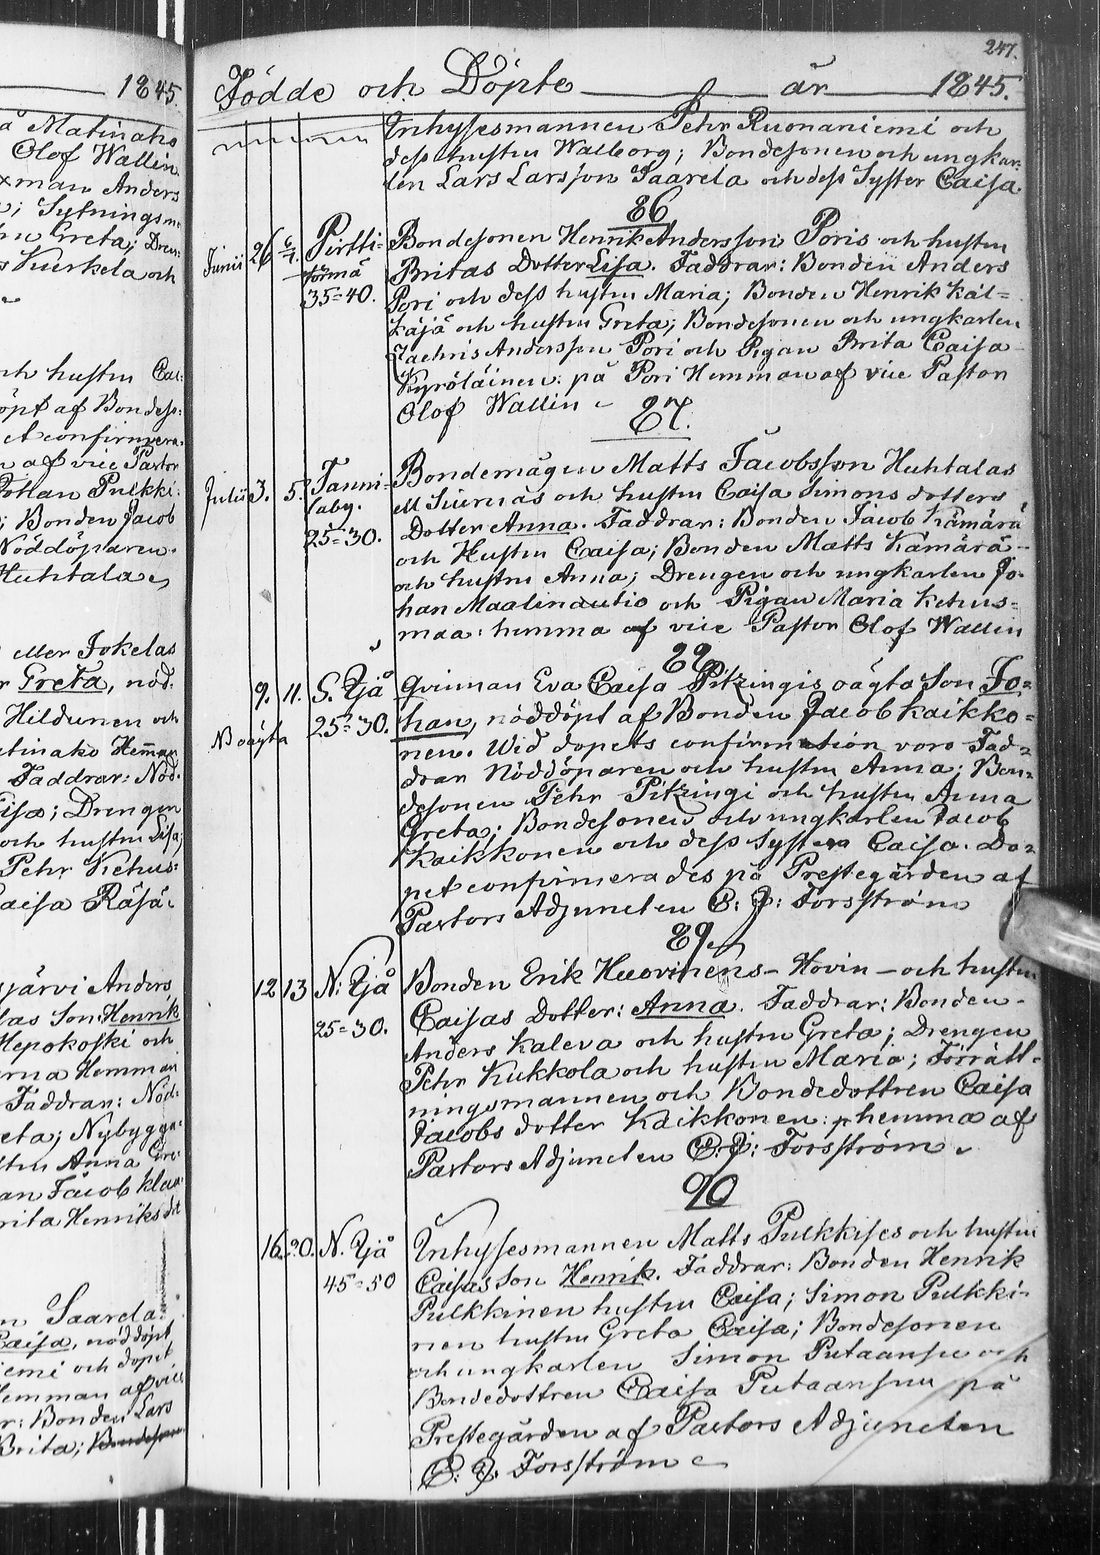 1845.
å Matinaho
Olof Wallin
xman Anders
; Sytningsm
Greta; Dren-
Kurkela och
och hustru Cai-
döpt af Bondeso-
confirmera-
af vice Pastor
Pulkki-
; Bonden Jacob
Nöddöparen
Huhtala
eller Jokelas
Greta, nöd-
Hildunen och
Hemman
Faddrar: Nöd-
Drengen
och hustru Lisa
Petr Kehus-
Caisa Räsä-
järvi Anders
Son Henrik
Hepokoski och
Hemman
Faddrar: Nöd-
Greta; Nybygga-
Anna Gre-
Jacob
Brita Henriksd:
Saarela
Caisa, nöddöpt
och döpt
Hemman af vice
Bonden Lars
Brita; Bondeson
247.
Födde och Döpte år 1845.
Inhysesmannen Pehr Ruonaniemi och
dess hustru Walborg; Bondesonen och ungkar-
len Lars Larsson Saarela och dess Syster Caisa
86
Junii 26 6/7. Pirtti- Bondesonen Henrik Andersson Poris och hustru
törmä Britas Dotter Lisa. Faddrar: Bonden Anders
35=40. Pori och dess hustru Maria; Bonden Henrik Käl-
käjä och hustru Greta; Bondesonen och ungkarlen
Zachris Andersson Pori och Pigan Brita Caisa
Kyröläinen: på Pori Hemman af vice Pastor
Olof Wallin
87.
Julii 3. 5. Tanni- Bondemågen Matts Jacobsson Huhtalas
laby. ell Siurnäs och hustru Caisa Simons dotters
25=30. Dotter Anna. Faddrar: Bonden Jacob Kämärä
och Hustru Caisa; Bonden Matts Kämärä
och hustru Anna; Drengen och ungkarlen Jo-
han Maalinautio och Pigan Maria Kehus=
maa: hemma af vice Pastor Olof Wallin
88
9. 11. S. Ijå Qvinnan Eva Caisa Pitzingis oägta Son Jo-
N oägta 25=30. han, nöddöpt af Bonden Jacob Kaikko=
nen. Wid dopets confirmation voro Fad=
drar Nöddöparen och hustru Anna; Bon=
desonen Pehr Pitzingi och hustru Anna
Greta; Bondesonen och ungkarlen Jacob
Kaikkonen och dess Syster Caisa. Do=
pet confirmerades på Prestegården af
Pastors Adjuncten C: J: Forsström
89.
12 13 N: Ijå Bonden Erik Huovinens - Hovin - och hustru
25=30. Caisas Dotter: Anna. Faddrar: Bonden
Anders Kaleva och hustru Greta; Drengen
Pehr Kukkola och hustru Maria; Förrätt-
ningsmannen och Bondedottren Caisa
Jacobs dotter Kaikkonen: hemma af
Pastors Adjuncten C: J: Forsström
90
16. 20. N. Ijå Inhysesmannen Matts Pulkkises och hustru
45=50 Caisas Son Henrik. Faddrar: Bonden Henrik
Pulkkinen hustru Caisa; Simon Pulkki-
nen hustru Greta Caisa; Bondesonen
och ungkarlen Simon Putaansuu och
Bondedottren Caisa Putaansuu på
Prestegården af Pastors Adjuncten
C: J. Forsström